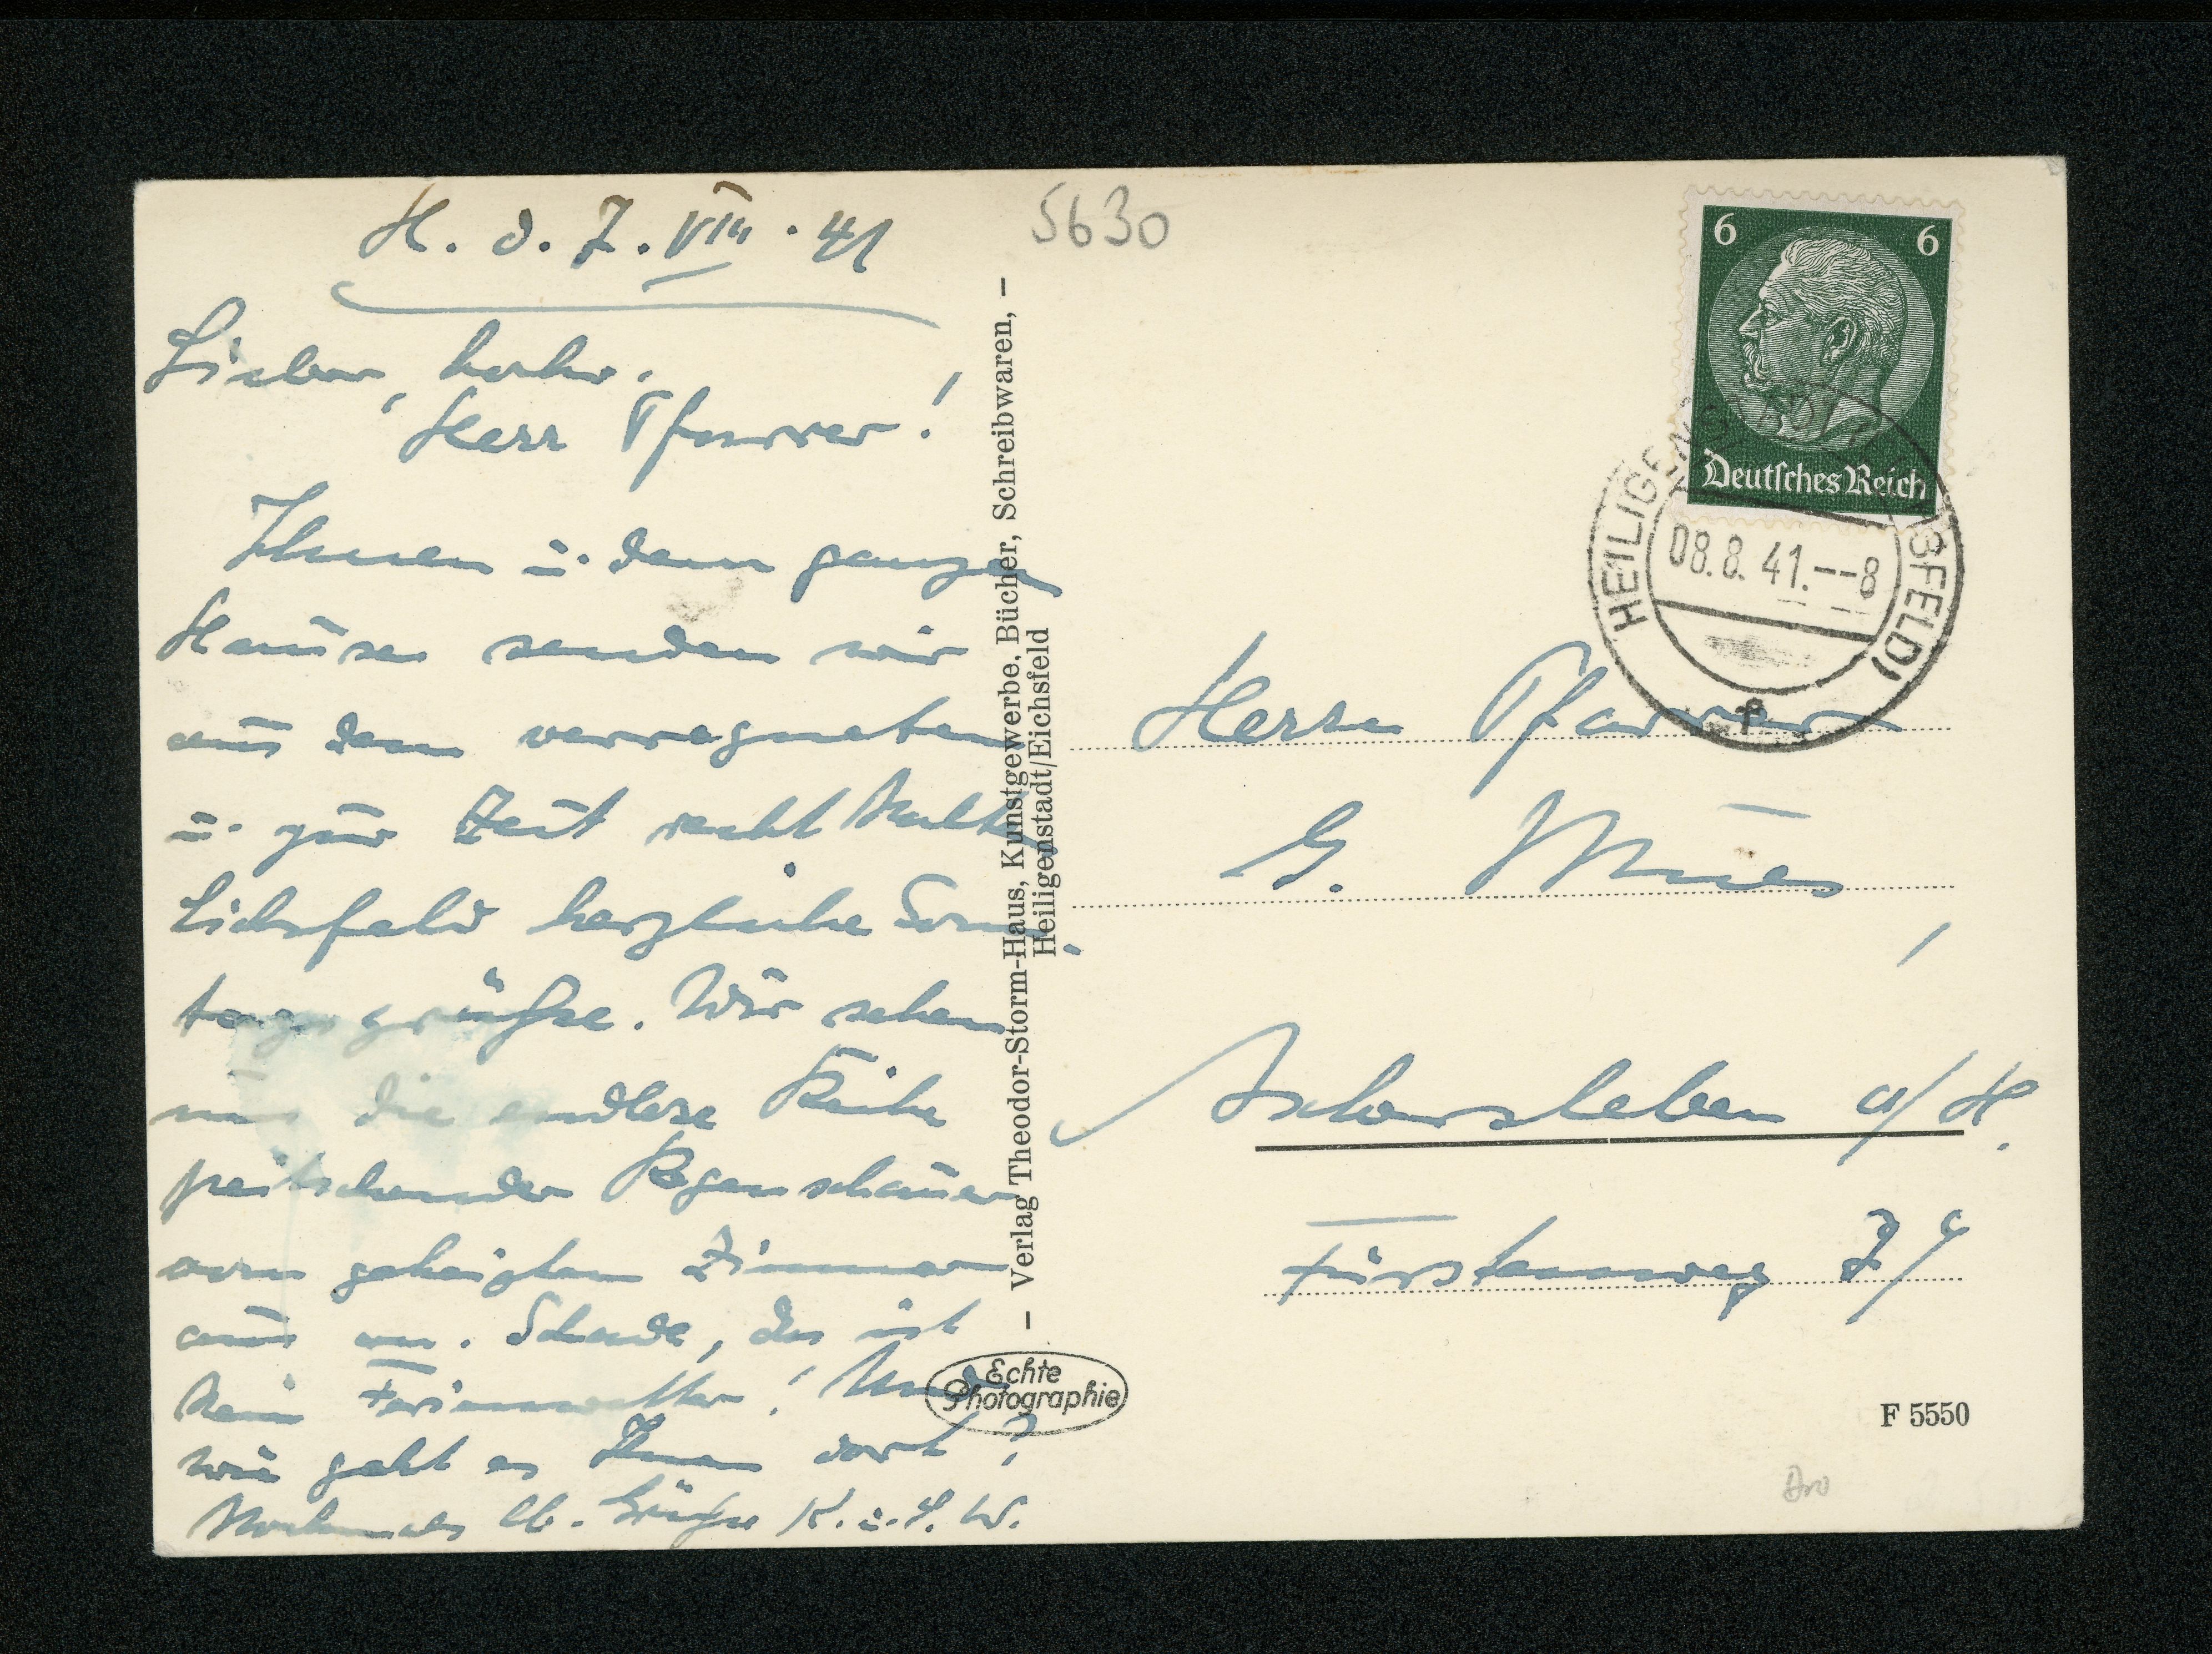 H. d. 7. VIII. 41
5630
Lieber, hochw.
Herr Pfarrer!
Ihnen u. dem ganzen
Hause senden wir
aus dem verregneten
u. zur Zeit recht kalten
Eichsfeld herzliche Sonn-
tagsgrüße. Wir sehen
uns die endlose Reihe
peitschender Regenschauer
vom geheizten Zimmer
aus an. Schade, das ist
kein Ferienwetter! Und
wie geht es Ihnen dort?
Nochmals hl. Grüße K. u. L. W.
– Verlag Theodor-Storm-Haus, Kunstgewerbe, Bücher, Schreibwaren, –
Heiligenstadt/Eichsfeld
Echte
Photographie
6 6
Deutsches Reich
HEILIGENSTADT (EICHSFELD)
08.8.41.--8
Herrn Pfarrer
G.
Aschersleben a/H.
Fürstenweg 7
F 5550